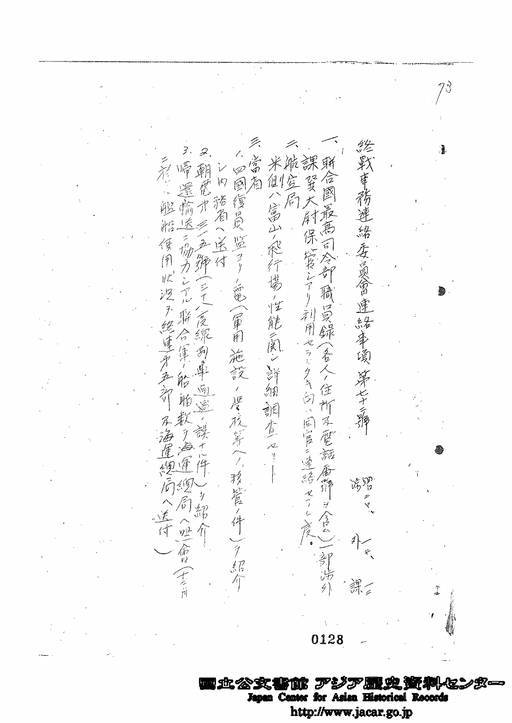 73
終戦事務連絡委員會連絡事項 第七十三號
昭二〇、一一、
渉 外 課
一、聯合國最高司令部職員録(各人ノ住所及電話番號ヲ含ム)一部渉外
課 大尉保管シアリ利用セラレ度キ向ハ同官ニ連絡セラレ度。
二、航空局
米側ハ富山ノ飛行場ノ性能ニ関シ詳細調査セリ
三、當省
1、四國復員監ヨリノ電(軍用施設ノ學校等ヘノ移管ノ件)ヲ紹介
シ内務省ヘ送付
2、朝電才三一五號( 線列車 ノ件)ヲ紹介
3、帰還輸送ニ協力シアル聯合軍ノ船舶数ヲ海運總局ヘ照會(十二月
ニ於ケル艦船使用状況ヲ終連才五部及海運總局ヘ送付)
0128
国立公文書館 アジア歴史資料センター
Japan Center for Asian Historical Records
http://www.jacar.go.jp